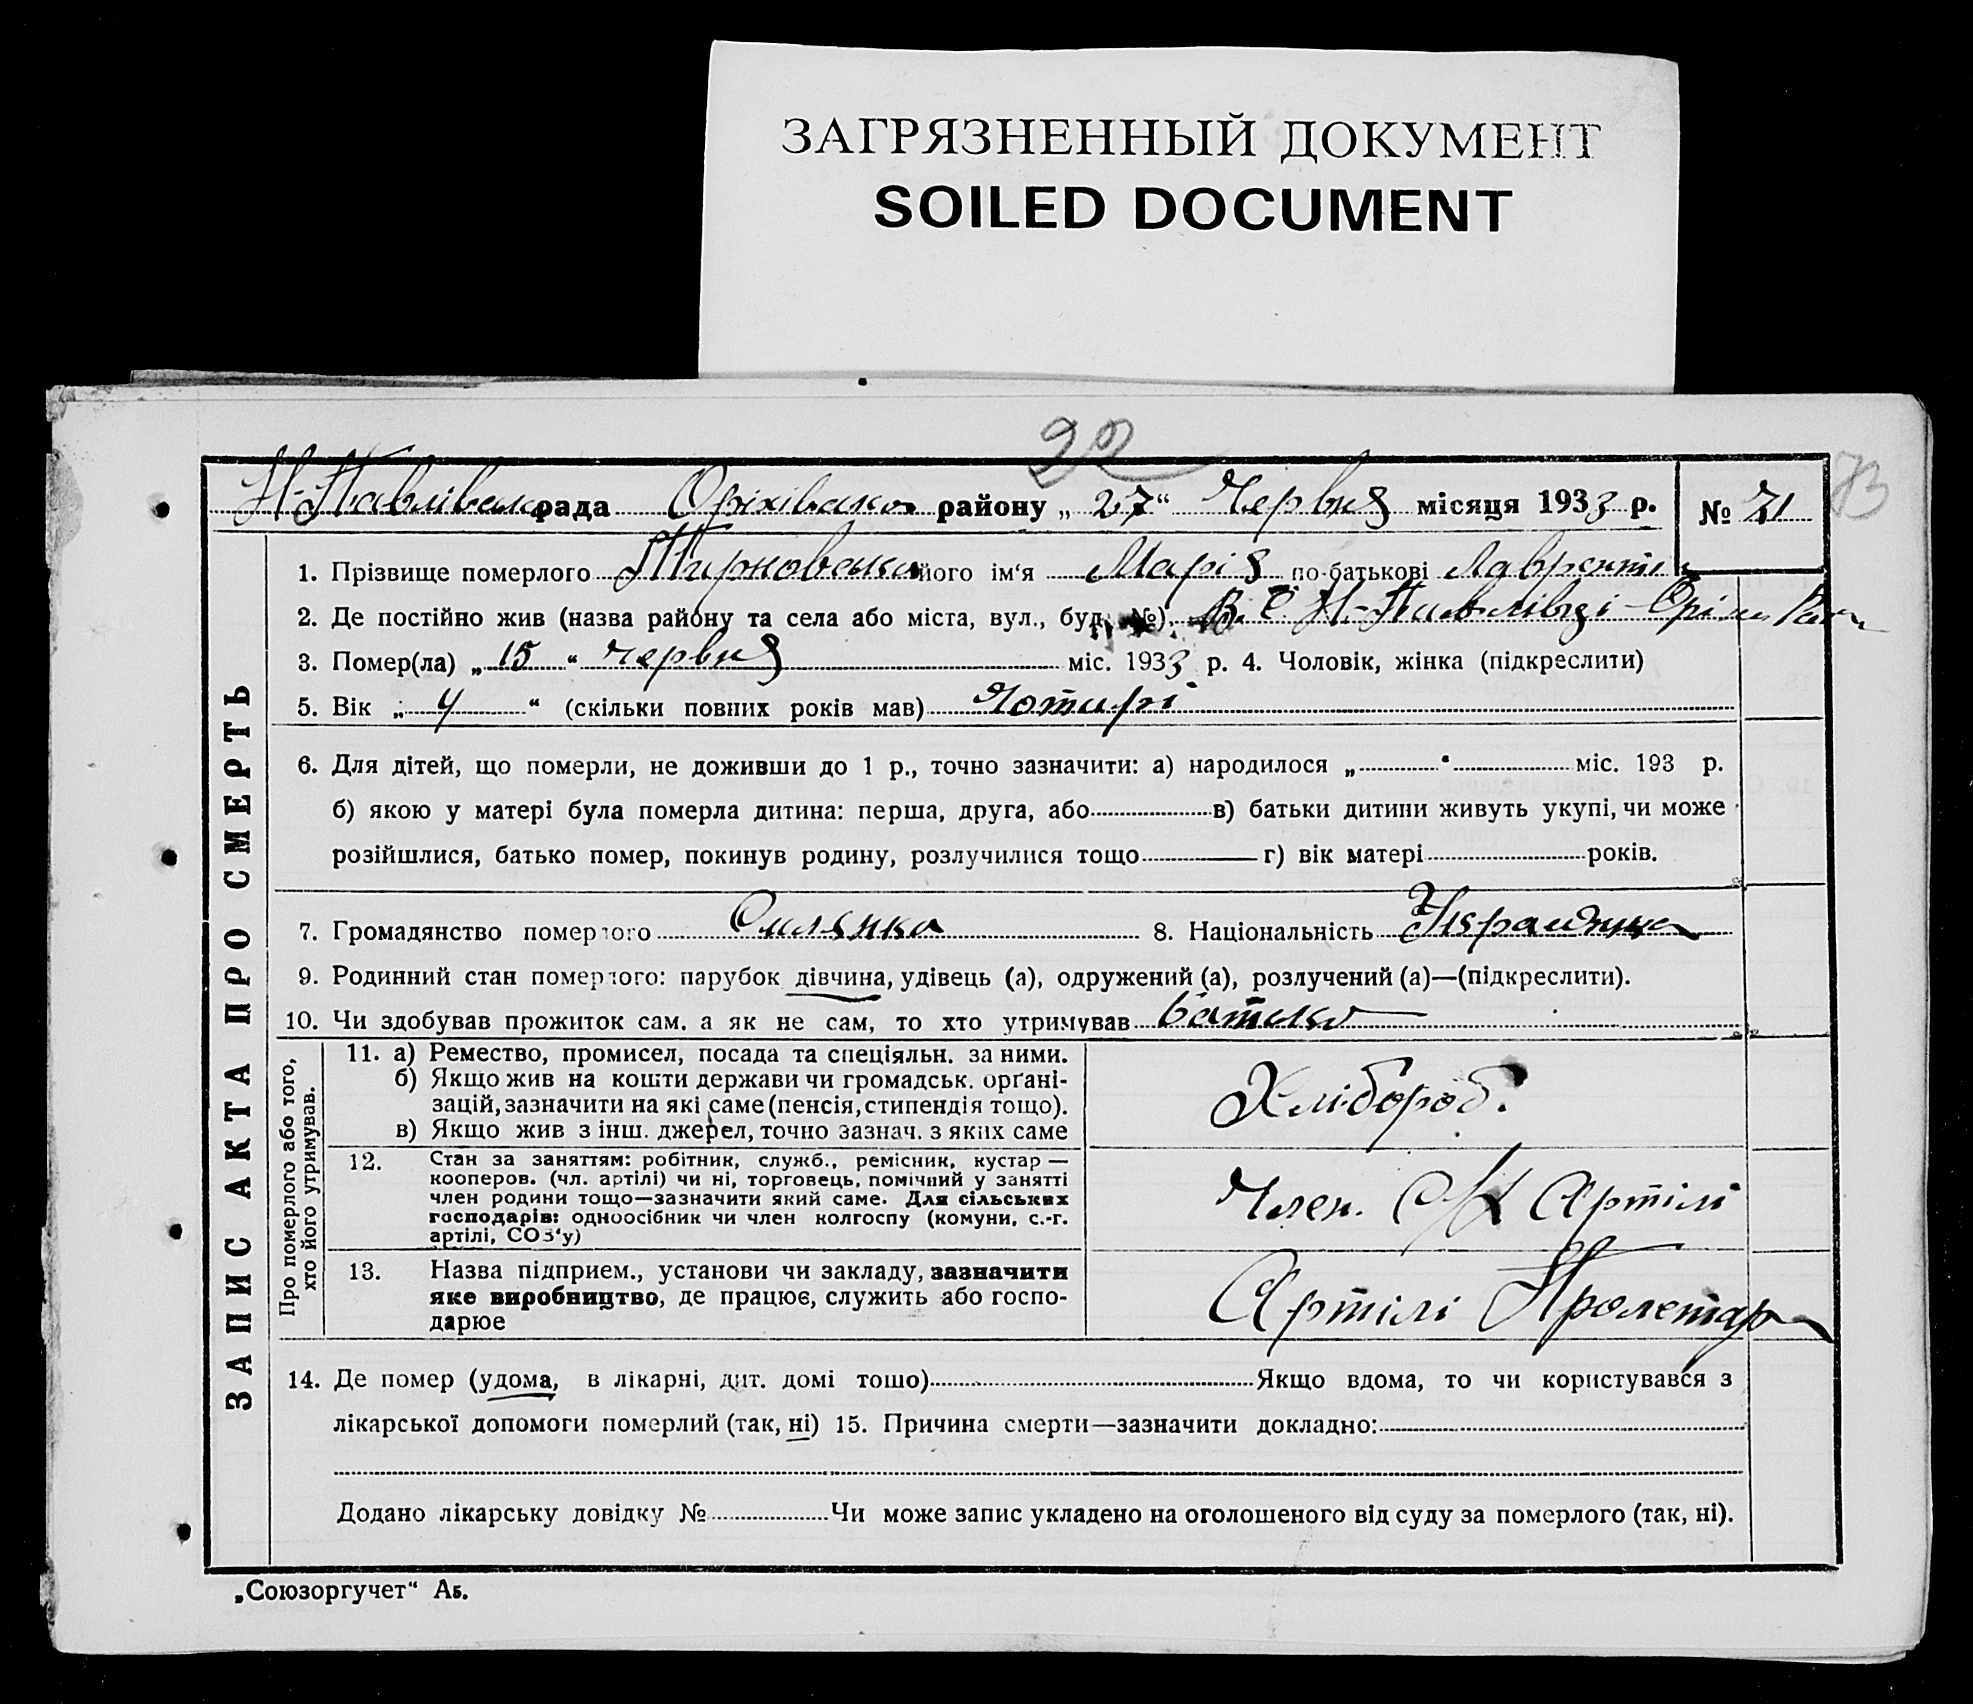 ЗАГРЯЗНЕННЫЙ ДОКУМЕНТ
SOILED DOCUMENT
22
73
Н-Павлівська рада Оріхівського району „27“ Червня місяця 1933 р. № 71
ЗАПИС АКТА ПРО СМЕРТЬ
1. Прізвище померлого Тирновська його ім‘я Марія по-батькові Лаврентів
2. Де постійно жив (назва району та села або міста, вул., буд. №) В. С. Н-Павлівці Оріх.
3. Помер(ла) „15“ червня міс. 1933 р. 4. Чоловік, жінка (підкреслити)
5. Вік „4“ (скільки повних років мав) Чотирі
6. Для дітей, що померли, не доживши до 1 р., точно зазначити: а) народилося „ “ міс. 193 р.
б) якою у матері була померла дитина: перша, друга, або в) батьки дитини живуть укупі, чи може
розійшлися, батько помер, покинув родину, розлучилися тощо г) вік матері років.
7. Громадянство померлого 8. Національність Українка
9. Родинний стан померлого: парубок дівчина, удівець (а), одружений (а), розлучений (а)—(підкреслити).
10. Чи здобував прожиток сам, а як не сам, то хто утримував батько
Про померлого або того,
хто його утримував.
11. а) Ремество, промисел, посада та спеціяльн. за ними.
б) Якщо жив на кошти держави чи громадськ. орґані-
зацій, зазначити на які саме (пенсія, стипендія тощо).
в) Якщо жив з інш. джерел, точно зазнач. з яких саме
Хлібороб.
12. Стан за заняттям: робітник, служб., ремісник, кустар —
кооперов. (чл. артілі) чи ні, торговець, помічний у занятті
член родини тощо—зазначити який саме. Для сільських
господарів: одноосібник чи член колгоспу (комуни, с.-г.
артілі, СОЗ‘у)
Член. С/Х Артілі
13. Назва підприєм., установи чи закладу, зазначити
яке виробництво, де працює, служить або госпо-
дарює
Артілі Пролетар
14. Де помер (удома, в лікарні, дит. домі тощо) Якщо вдома, то чи користувався з
лікарської допомоги померлий (так, ні) 15. Причина смерти—зазначити докладно:
Додано лікарську довідку № Чи може запис укладено на оголошеного від суду за померлого (так, ні).
„Союзоргучет“ Аб.